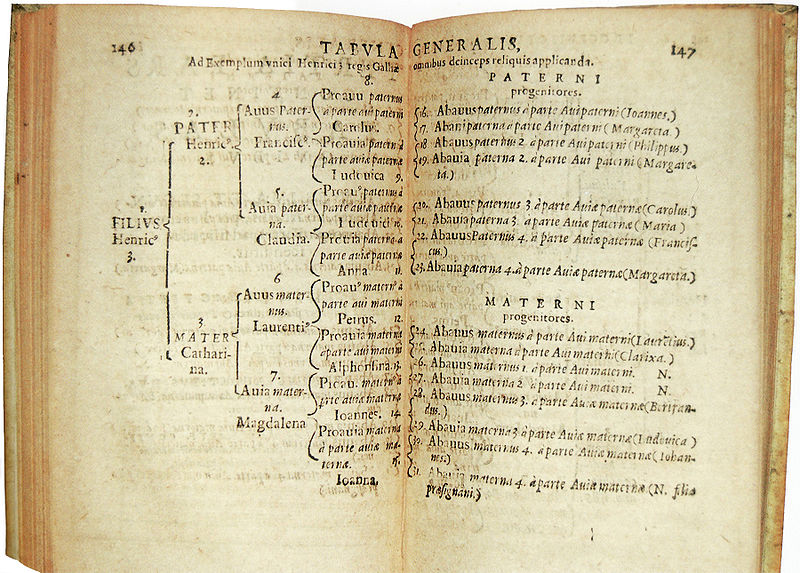 146
TABVLA
Ad Exemplum vnici Henrici 3 regis Galliæ
8.
1.
FILIVS
Henricꝰ
3.
2.
PATER
Henricꝰ
2.
3
MATER
Cathari-
na.
4
Auus Pater-
nus.
Franciscꝰ.
5.
Auia pater-
na.
Claudia.
6
Auus mater-
nus.
Laurentiꝰ
7.
Auia mater-
na.
Magdalena
Proauu paternus
à parte aui paterni
Carolus.
Proauia paterna à
parte aui paterni
Ludouica 9.
Proauꝰ paternus à
parte auiæ paternæ
Ludouici
Proauia paterna à
parte auiæ paternæ
Anna 11.
Proauꝰ maternꝰ à
parte aui materni
Petrus. 12.
Proauia materna
à parte aui materni
Alphonsina. 13.
Proau. maternꝰ à
parte auiæ maternæ
Ioannes. 14.
Proauia materna
à parte auiæ ma-
ternæ. 15.
Ioanna.
GENERALIS,
147
omnibus deinceps reliquis applicanda.
PATERNI
progenitores.
16. Abauus paternus à parte Aui paterni (Ioannes.)
17. Abaui paterna à parte Aui paterni (Margareta.)
18 Abauus paternus 2. à parte Aui paterni (Philippus.)
19. Abauia paterna 2. à parte Aui paterni (Margare-
ta.)
20. Abauus paternus 3. à parte Auiæ paternæ (Carolus.)
21. Abauia paterna 3. à parte Auiæ paternæ (Maria)
22. Abauus Paternus 4. à parte Auiæ paternæ (Francis-
cus.)
23. Abauia paterna 4. à parte Auiæ paternæ (Margareta.)
MATERNI
progenitores.
24. Abauus maternus à parte Aui materni (Laurẽtius.)
25. Abauia materna à parte Aui materni (Clarixa.)
26. Abauus maternus 1. à parte Aui materni. N.
27. Abauia materna 2 à parte Aui materni. N.
28. Abauus maternus 3. à parte Auiæ maternæ (Bertran-
dus.)
29. Abauia materna 3 à parte Auiæ maternæ (Ludouica)
30. Abauus maternus 4. à parte Auiæ maternæ (Iohan-
nes.)
31. Abauia materna 4. à parte Auiæ maternæ (N. filia
præsignani.)